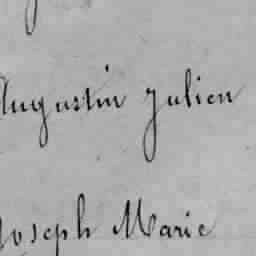 Augustin Julien
Joseph Marie